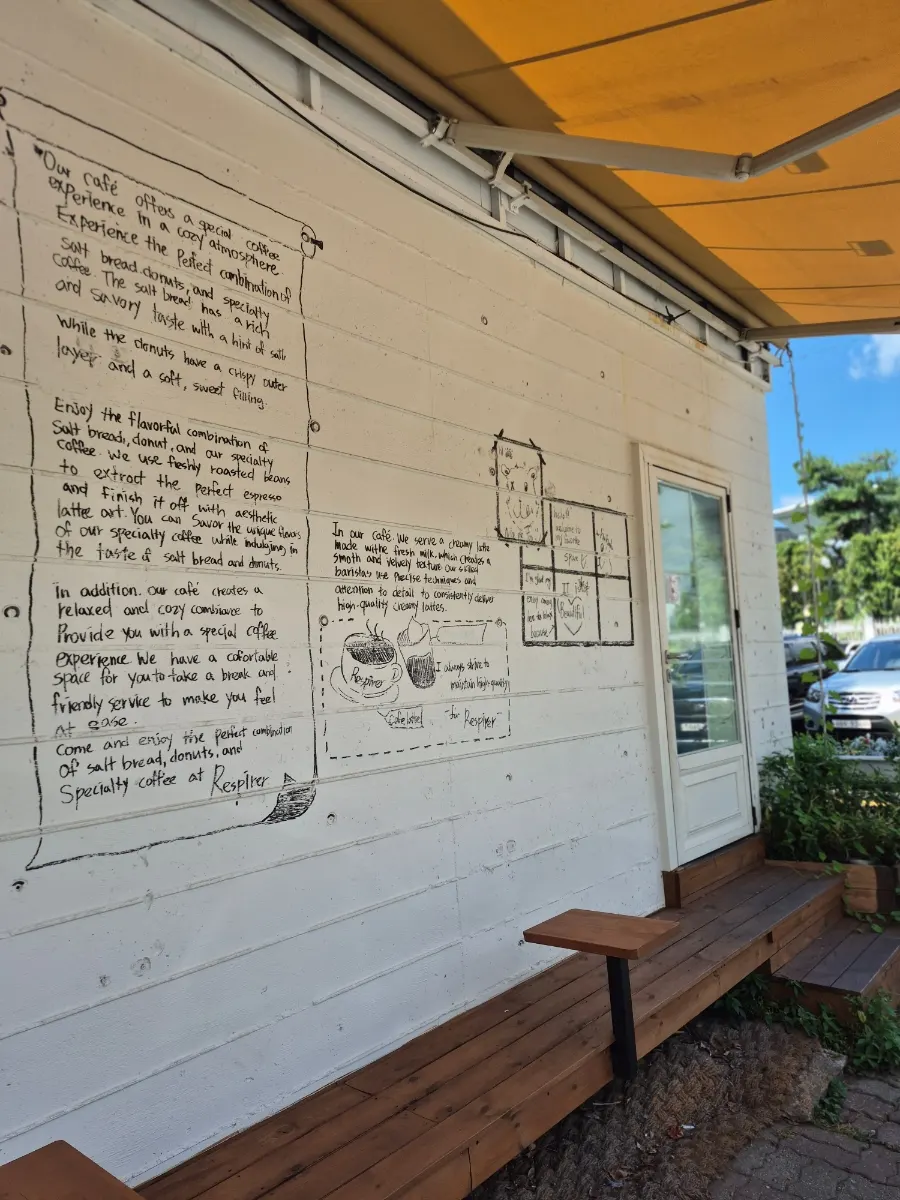 Our café offers a special coffee
experience in a cozy atmosphere.
Experience the Perfect combination of
Salt bread, donuts, and specialty
coffee. The salt bread has a rich
and savory taste with a hint of salt
While the donuts have a crispy outer
layer and a soft, sweet filling.
Enjoy the flavorful combination of
Salt bread, donut, and our specialty
coffee. We use freshly roasted beans
to extract the perfect espresso
and finish it off with aesthetic
latte art. You can Savor the unique flavors
of our specialty coffee while indulging in
the taste of salt bread and donuts.
In addition. our café creates a
relaxed and cozy combiance to
Provide you with a special coffee
experience. We have a cofortable
space for you to take a break and
friendly service to make you feel
at ease.
Come and enjoy the Perfect combination
of salt bread, donuts, and
Specialty coffee at Respirer
In our café. We serve a creamy latte
made withe fresh milk. which creates a
smoth and velvety texture our skilled
baristas use Precise techniques and
attention to detail to consistently deliver
high-quality creamy lattes.
Respirer
I always strive to
maintain high quality
Cafe latte
"for Respirer"
welcome to
my favorite
space
I'm glad my
Beautiful
because